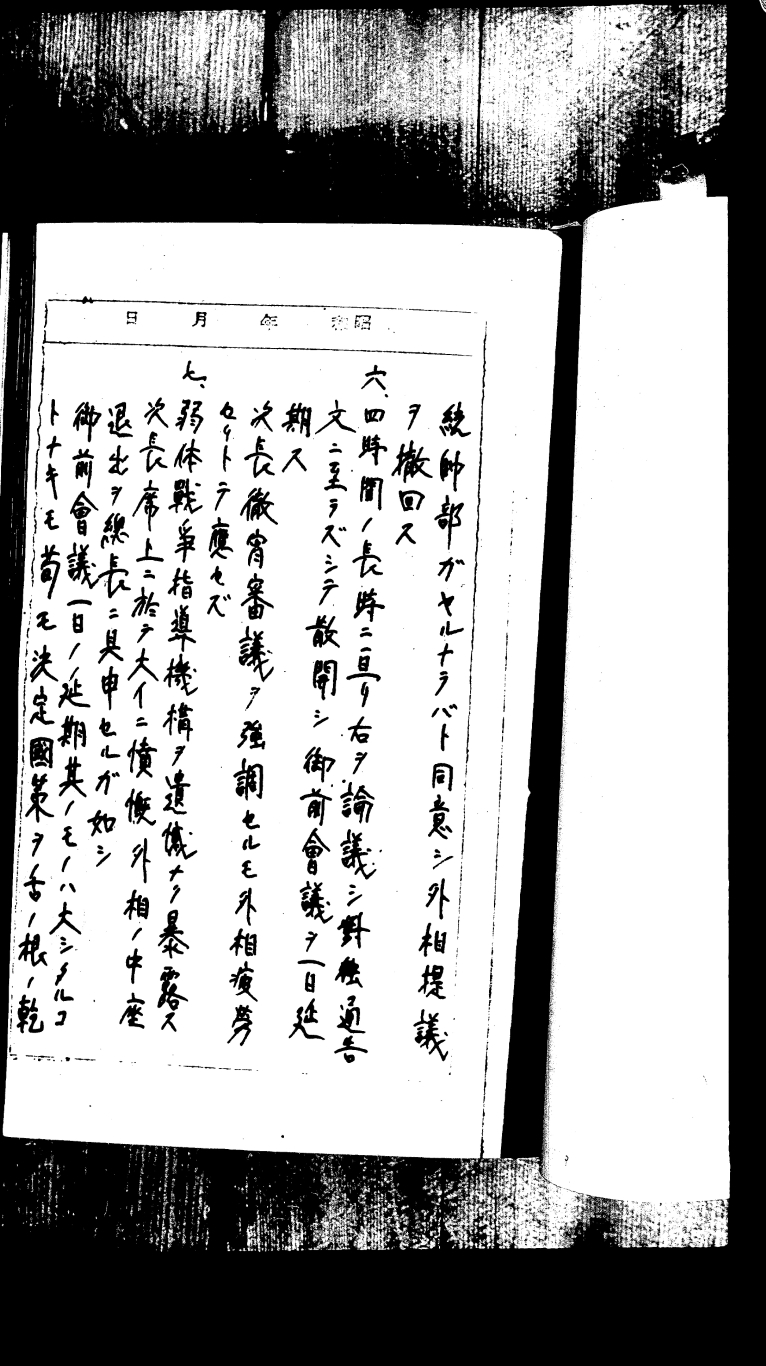 昭和　年　月　日
統帥部ガヤルナラバト同意シ外相提議
ヲ撤回ス
六、四時間ノ長時ニ亘リ右ヲ論議シ對独通告
文ニ至ラズシテ散開シ御前會議ヲ一日延
期ス
次長徹宵審議ヲ強調セルモ外相疲労
セリトテ應セズ
七、弱体戰爭指導機構ヲ遺憾ナク暴露ス
次長席上ニ於テ大イニ憤慨外相ノ中座
退出ヲ總長ニ具申セルガ如シ
御前會議一日ノ延期其ノモノハ大シタルコ
トナキモ苟モ決定國策ヲ舌ノ根ノ乾